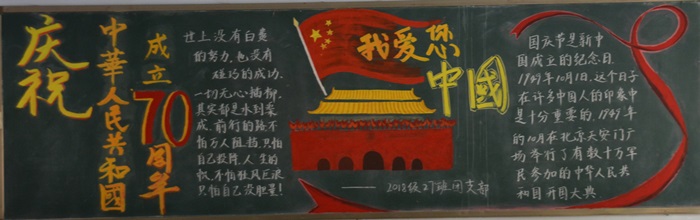 庆祝
中華人民共和國
成立
70周年
世上没有白费
的努力，也没有
碰巧的成功，
一切无心插柳，
其实都是水到渠
成，前行的路不
怕万人阻挡，只怕
自己投降，人生的
帆，不怕狂风巨浪
只怕自己没胆量！
我爱您
中國
——2018级27班团支部
国庆节是新中
国成立的纪念日。
1949年10月1日，这个日子
在许多中国人的印象中
是十分重要的，1949年
的10月在北京天安门广
场举行了有数十万军
民参加的中华人民共
和国开国大典